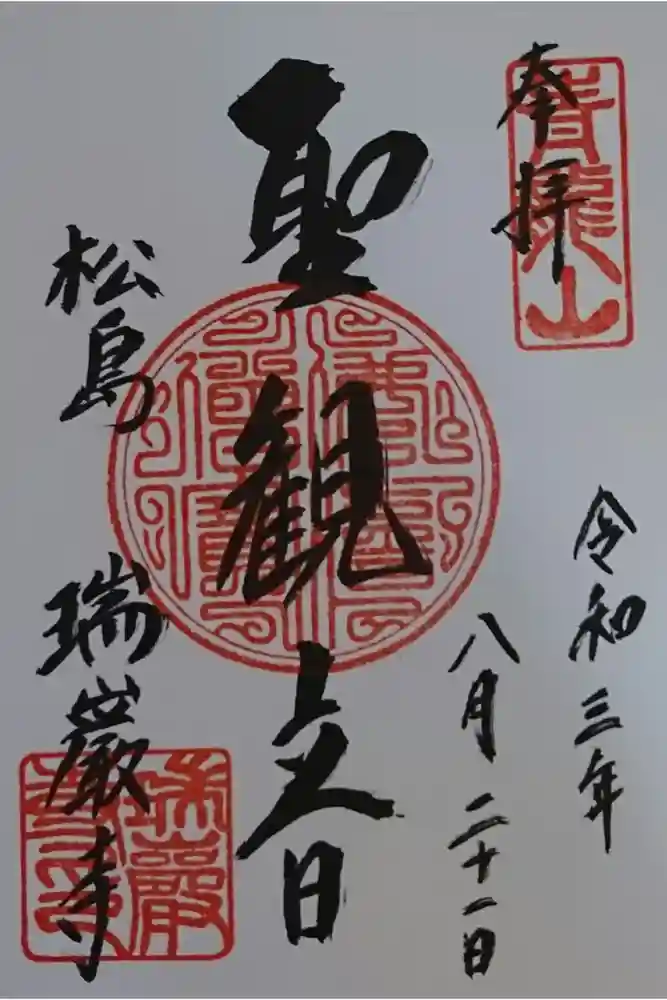 奉拝
青龍山
令和三年
八月二十一日
聖観音
松島
瑞巌寺
瑞巌